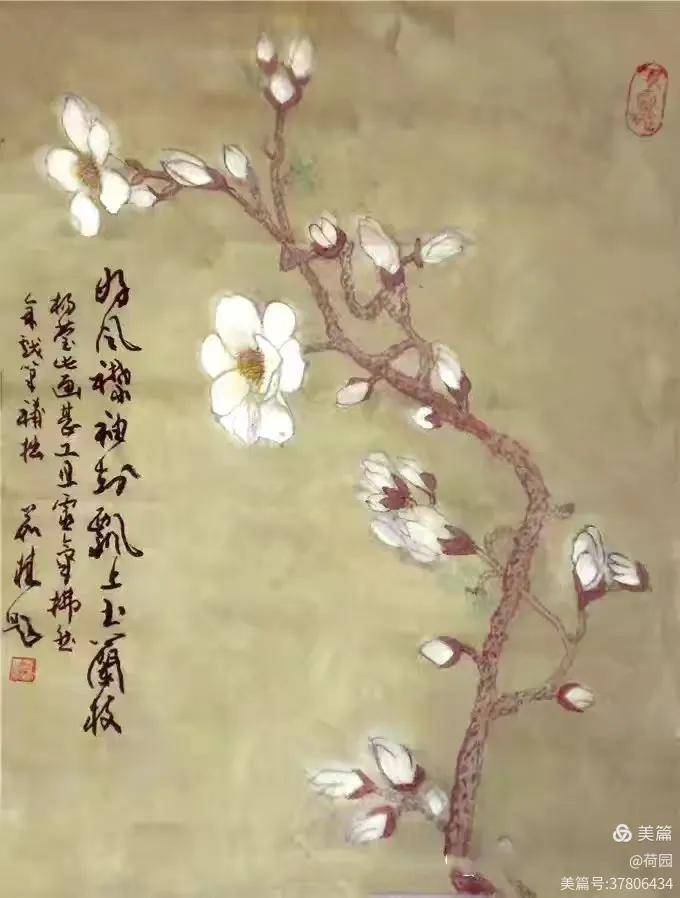 好风襟袖知 飘上玉兰枝
杨莹此画甚工且灵气拂然
余戏笔补拙
题
美篇
@荷园
美篇号:37806434